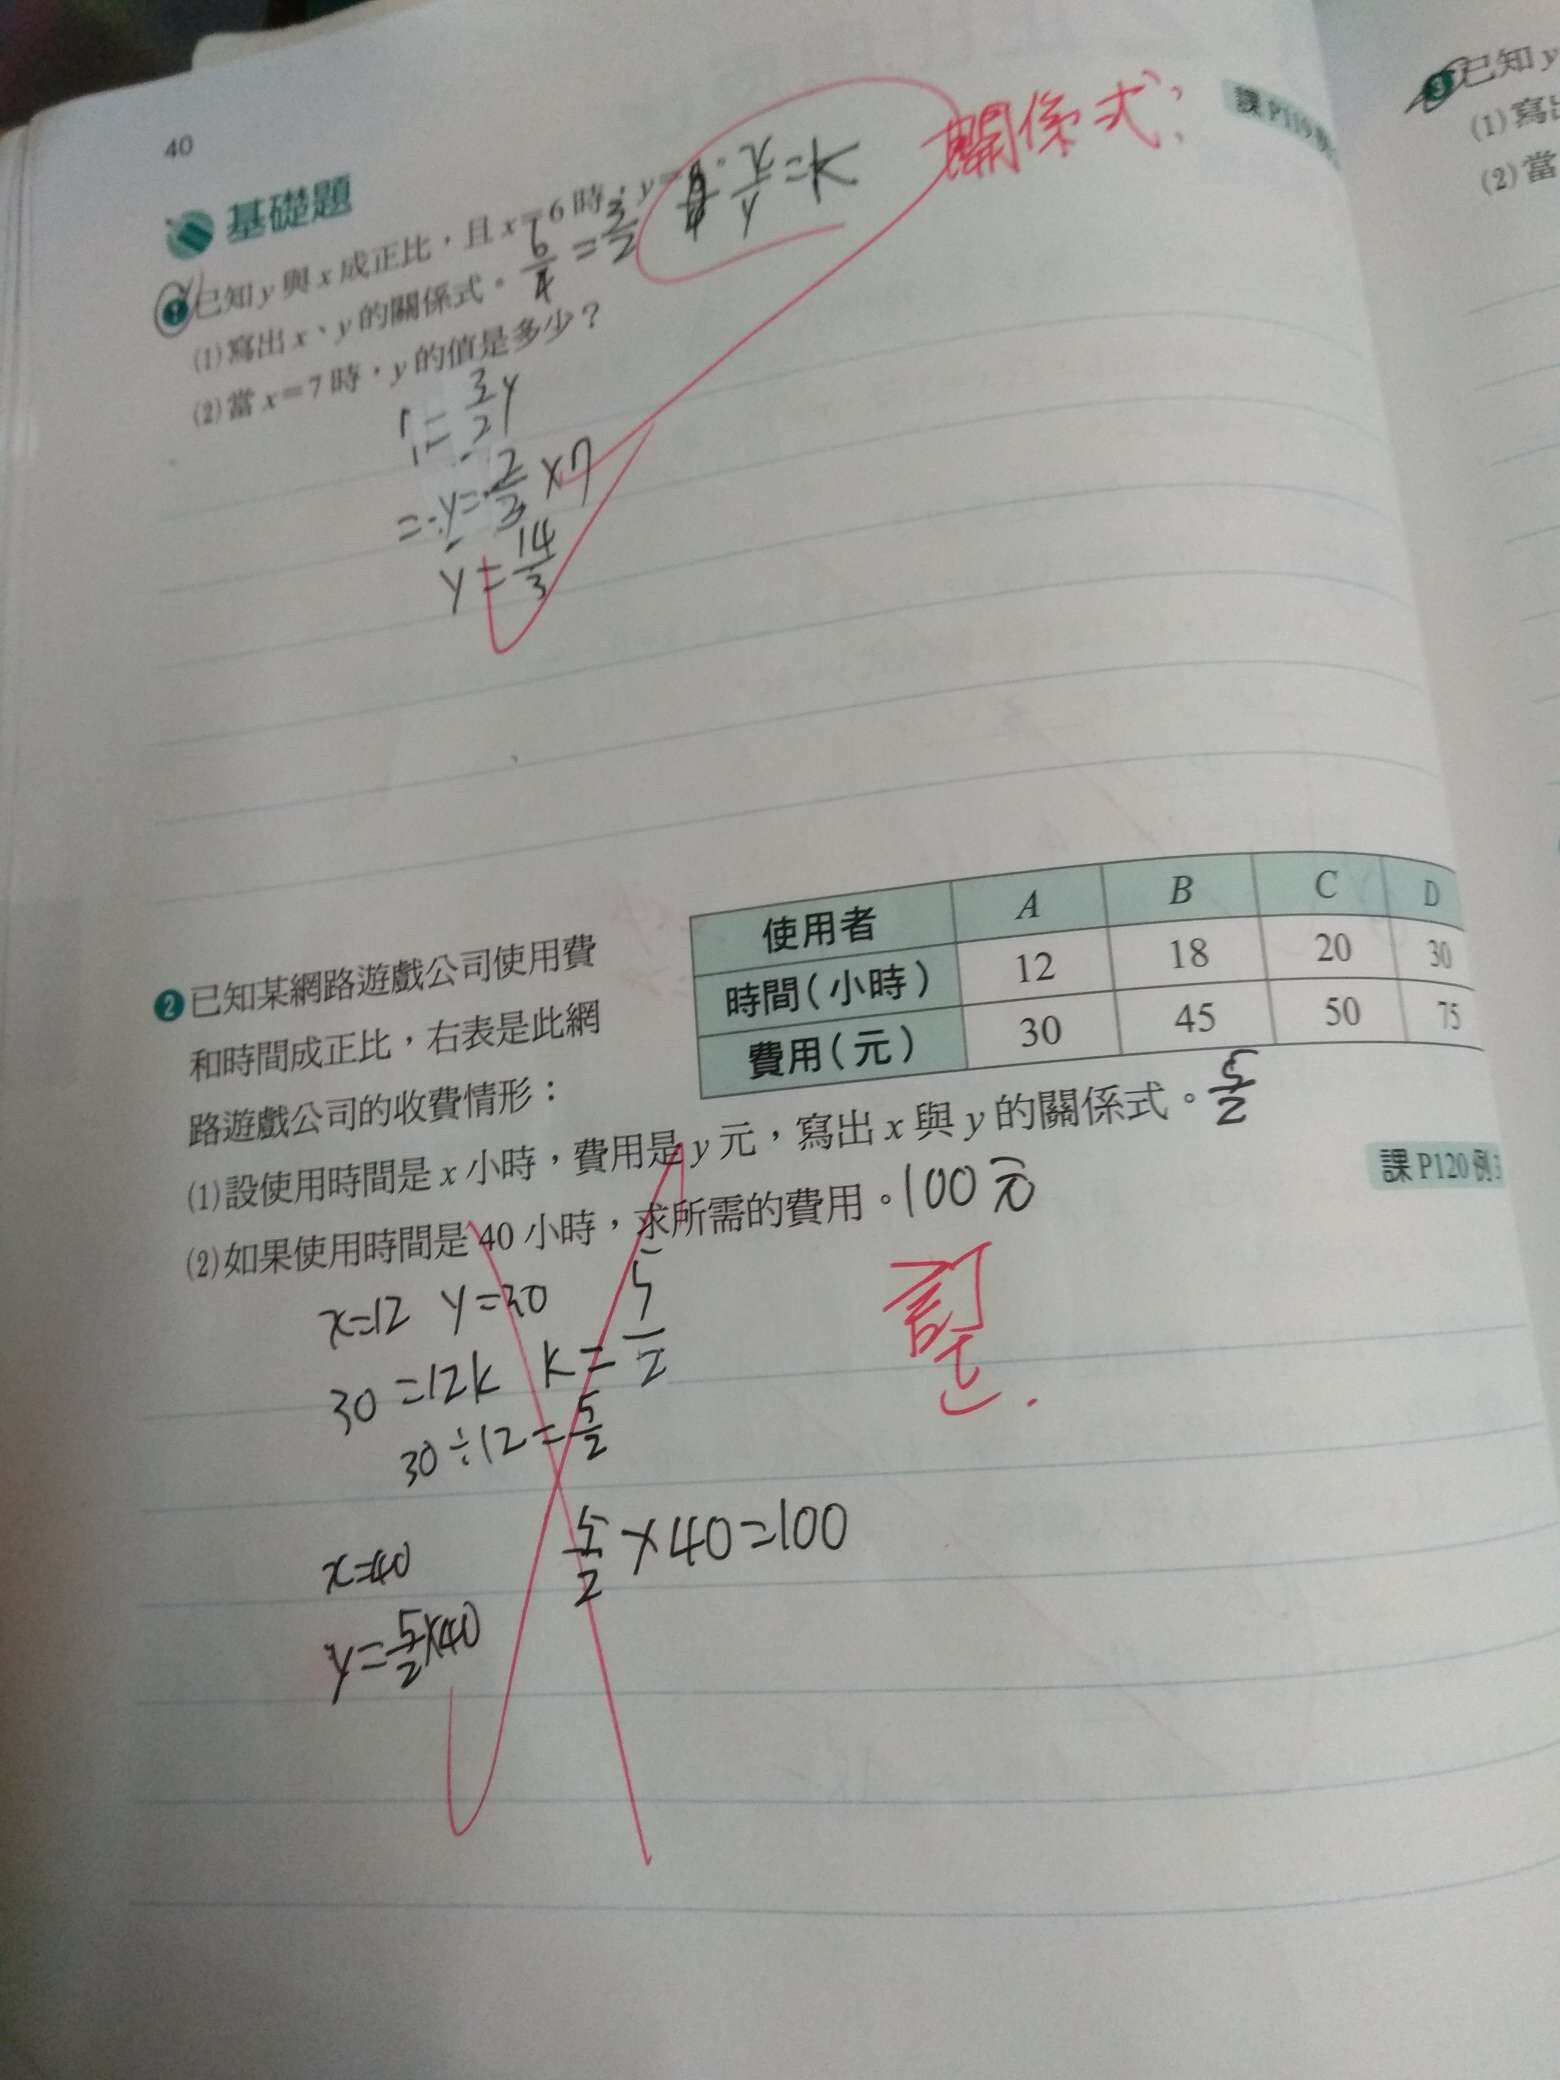 40
基礎題
課 P119
關係式：
❶已知 y 與 x 成正比，且 x=6 時，y=
6/4 = 3/2
x/y = k
(1)寫出 x、y 的關係式。
(2)當 x=7 時，y 的值是多少？
= 3/2 y
y = 2/3 × 7
y = 14/3
❷已知某網路遊戲公司使用費
和時間成正比，右表是此網
路遊戲公司的收費情形：
使用者 A B C D
時間(小時) 12 18 20 30
費用(元) 30 45 50 75
(1)設使用時間是 x 小時，費用是 y 元，寫出 x 與 y 的關係式。 5/2
課 P120 例 3
(2)如果使用時間是 40 小時，求所需的費用。 100元
訂正.
x=12 y=30
30=12k k= 5/2
30÷12= 5/2
x=40
5/2 ×40=100
y= 5/2 ×40
3 已知 y
(1)寫出
(2)當